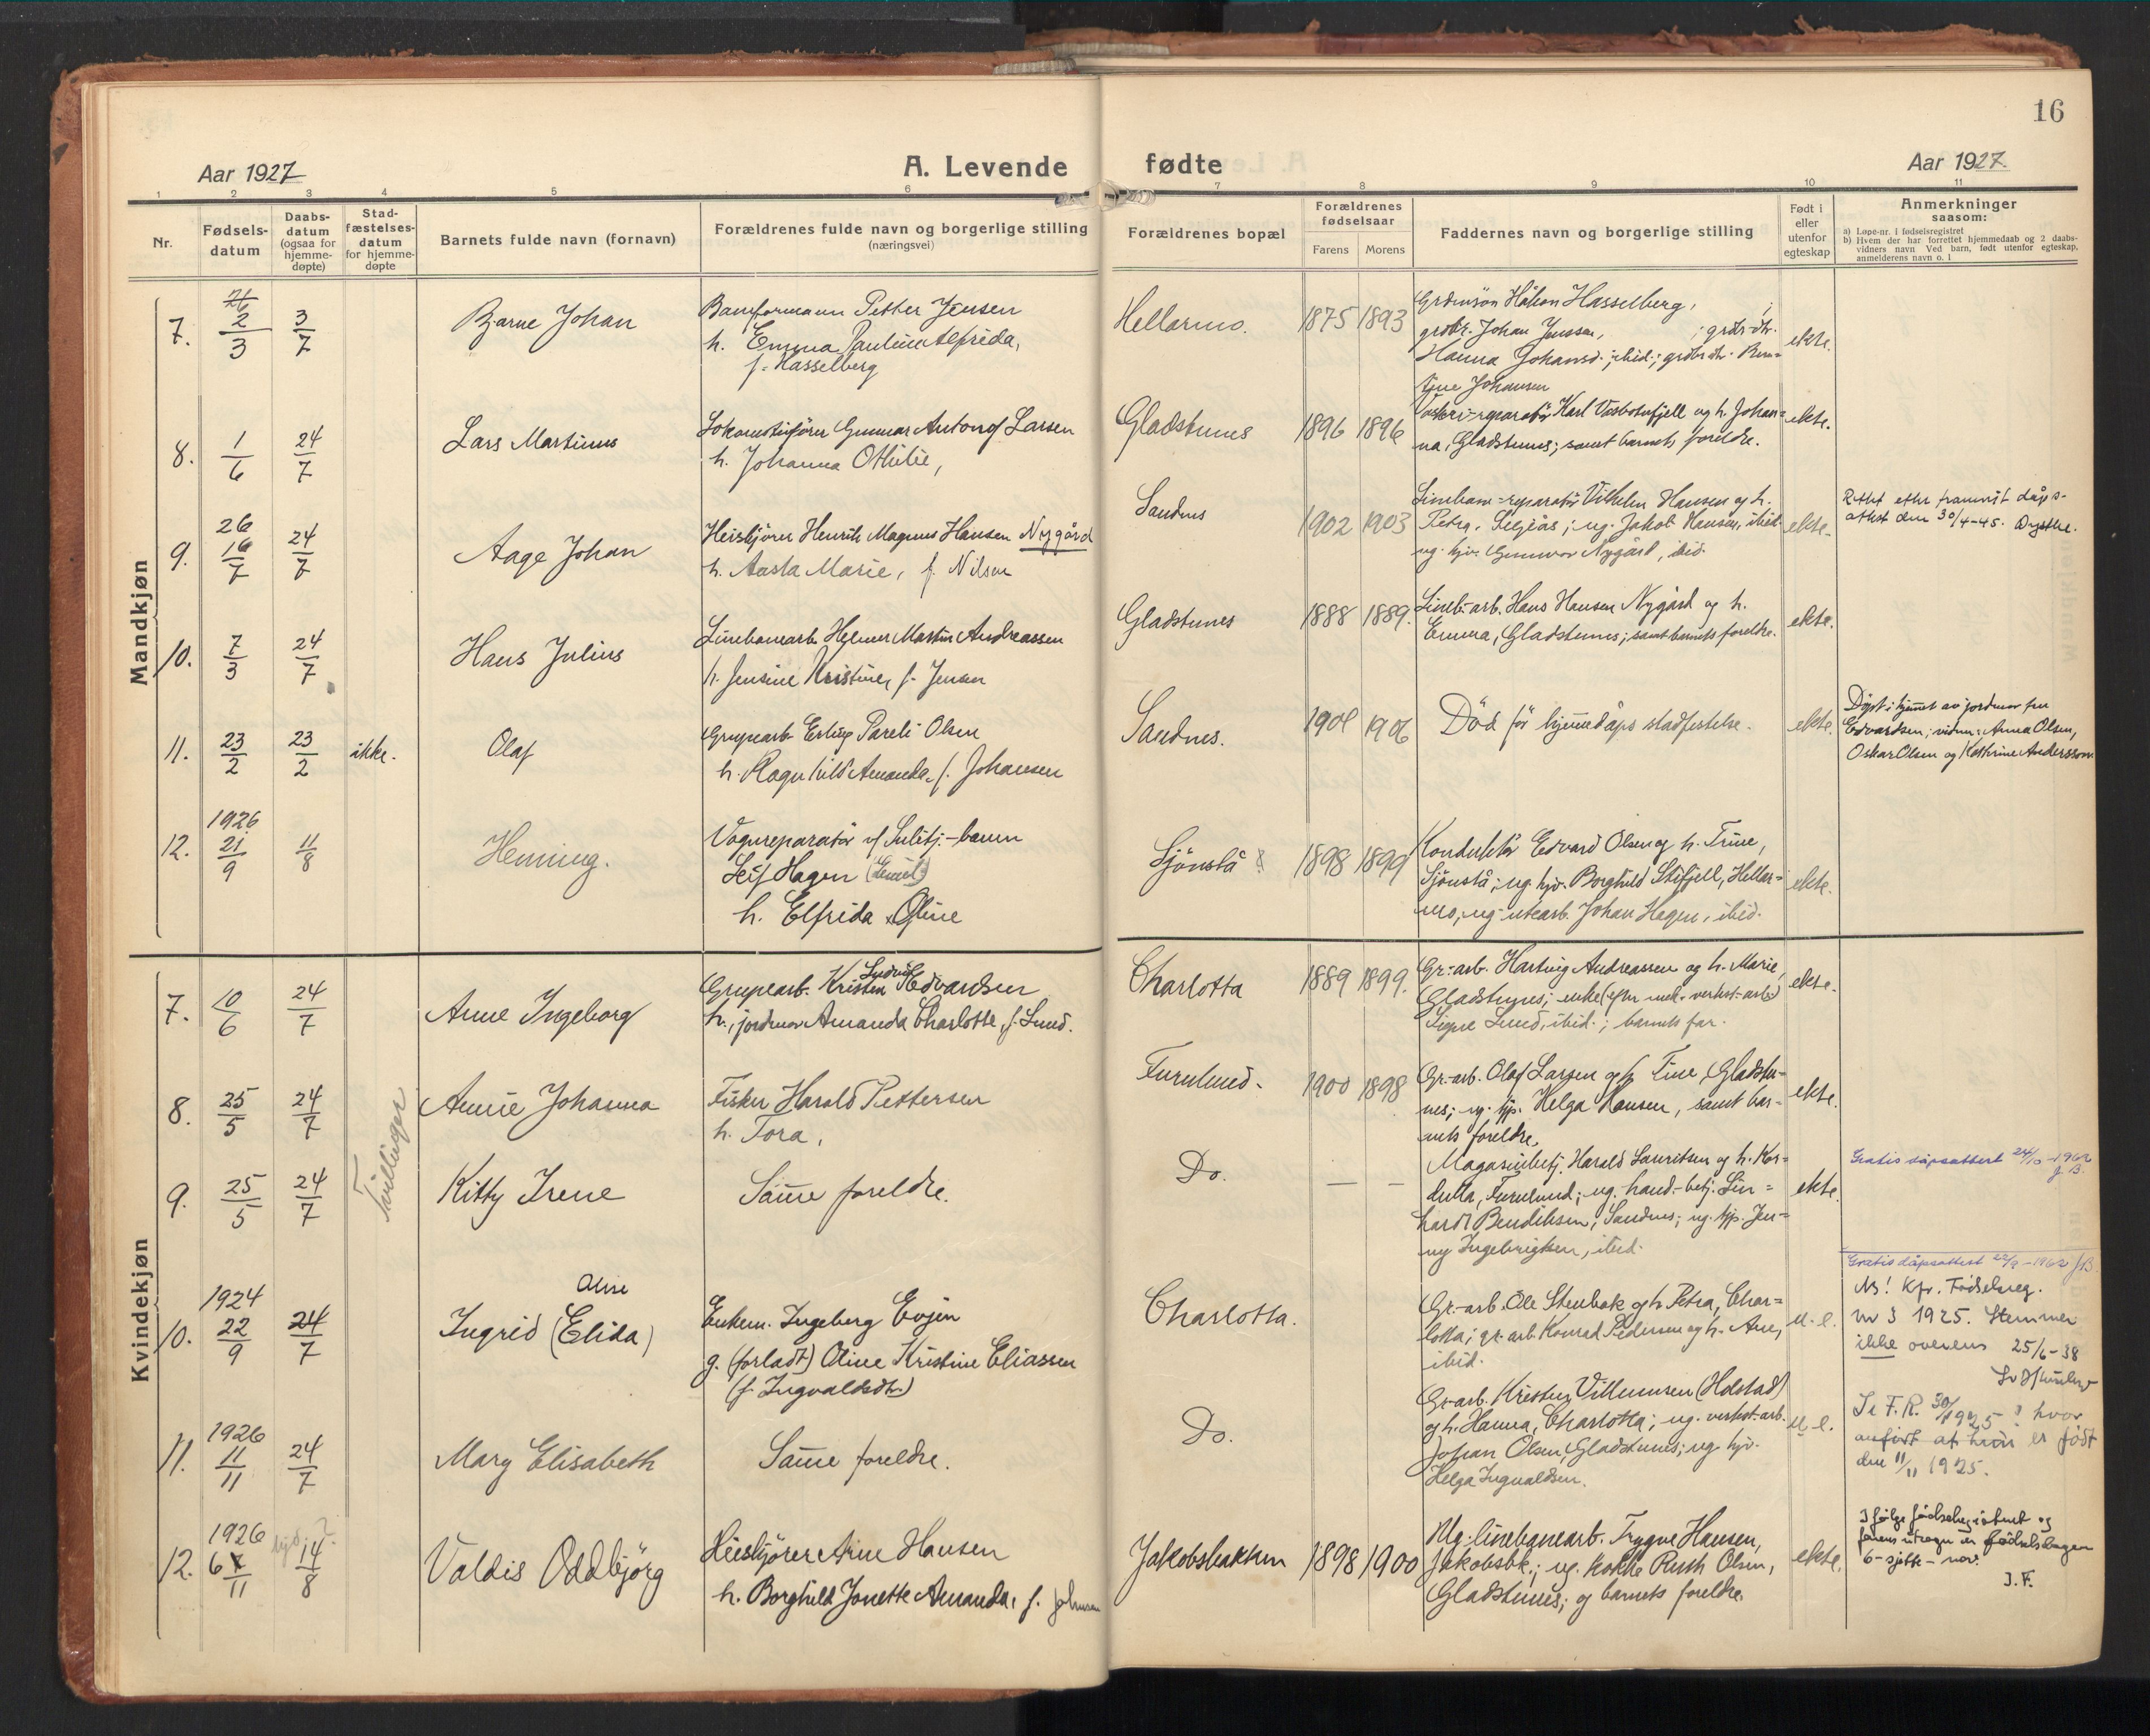 16
Aar 1927
A. Levende
fødte
Aar 1927.
1 2 3 4 5 6 7 8 9 10 11
Nr.
Fødsels-
datum
Daabs-
datum
(ogsaa for
hjemme-
døpte)
Stad-
fæstelses-
datum
for hjemme-
døpte
Barnets fulde navn (fornavn)
Forældrenes fulde navn og borgerlige stilling
(næringsvei)
Forældrenes bopæl
Forældrenes
fødselsaar
Farens
Morens
Faddernes navn og borgerlige stilling
Født i
eller
utenfor
egteskap
Anmerkninger
saasom:
a) Løpe-nr. i fødselsregistret
b) Hvem der har forrettet hjemmedaab og 2 daabs-
vidners navn Ved barn, født utenfor egteskap,
anmelderens navn o. l
Mandkjøn
7. 2/3 3/7 Bjarne Johan
Petter Jensen
h. Emma Pauline Alfrida,
f. Hasselberg
Hellarmo. 1875 1893
Håkon Hasselberg,
grdbr. Johan Jenssen, ; grdbr.dtr.
Hanna Johansd. ; ibid.; grdbr.dtr.
Johansen
ekte.
8. 1/6 24/7 Lars Martinus
Lokomotivfører Gunnar Antonof Larsen
h. Johanna Othilie,
Gladstunes 1896 1896
Karl Vasbotnfjell og h. Johan=
na, Gladstunes; samt barnets foreldre.
ekte.
9. 26 16/7 24/7 Aage Johan
Heiskjører Henrik Magnus Hansen Nygård
h. Aasta Marie, f. Nilsen
Sandnes 1902 1903
Linebane-reparatør Vilhelm Hansen og h.
Petra, ; ug. Jakob Hansen, ibid
ug. hjv. Gunnvor Nygård, ibid.
ekte.
Rettet efter dåps-
attest den 30/4-45.
10. 7/3 24/7 Hans Julius
Linebanearb. Helmer Martin Andreassen
h. Jensine Kristine, f. Jensen
Gladstunes 1888 1889.
Lineb-arb. Hans Hansen Nygård og h.
Emma, Gladstunes; samt barnets foreldre.
ekte.
11. 23/2 23/2 ikke. Olaf
Grupearb. Erling Pareli Olsen
h. Ragnhild Amanda, f. Johansen
Sandnes. 1904 1906
Död för hjemmedåps stadfestelse.
ekte.
Döpt i hjemmet av jordmor fru
Edvardsen; vidner: Anna Olsen,
Oskar Olsen og Kathrine Anderssen.
12. 1926 21/9 11/8 Henning.
Vognreparatör v/ Sulitj.-banen
Leif Hagen (Emil)
h. Elfrida Oline
Sjönstå 1898 1899
Konduktör Edvard Olsen og h. Trine,
Sjönstå; ug. hjv. Borghild Stifjell, Hellar=
mo, ug. utearb. Johan Hagen, ibid.
ekte.
Kvindekjøn
7. 10/6 24/7 Anne Ingeborg
Ludvik
Grupearb. Kristen Edvardsen
h., jordmor Amanda Charlotte, f. Lund.
Charlotta 1889 1899.
Gr.-arb. Hartvig Andreassen og h. Marie,
Gladstunes; enke (efter mek. verkst-arb.)
Signe Lund, ibid.; barnets far.
ekte.
Tvillinger
8. 25/5 24/7 Annie Johanna
Fisker Harald Pettersen
h. Tora,
Furulund. 1900 1898
Gr.-arb. Olaf Larsen og h. Tine, Gladstu-
nes; ug. tjp. Helga Hansen, samt bar=
nets foreldre.
ekte.
9. 25/5 24/7 Kitty Irene
Samme foreldre.
Do. — —
Magasinbetj. Harald Lauritsen og h. Kor=
delia, Furulund; ug. hand.-betj. Lin=
hardt Bendiksen, Sandnes; ug. tjp. Jen=
ny Ingebrigtsen, ibid.
ekte.
Gratis dåpsattest 24/10-1962
J.B.
10. 1924 22/9 24/7 Ingrid (Elida)
Oline
Enkem. Ingeberg Evjen
g. (forladt) Oline Kristine Eliassen
(f. Ingvaldsdtr.)
Charlotta.
Gr.-arb. Ole Stenbak og h. Petra, Char=
lotta; gr.-arb. Konrad Pedersen og h. Ane,
ibid.
U. e.
Gratis dåpsattest 22/9-1962 J.B.
Ns! Kfr. Födselsreg.
nr 3 1925. Stemmer
ikke overens 25/6-38
11. 1926 11/11 24/7 Mary Elisabeth
Samme foreldre.
Do.
Gr.-arb. Kristen Villumsen (Holstad)
og h. Hanna, Charlotta; ug. verkst-arb.
Johan Olsen, Gladstunes; ug. hjv.
Helga Ingvaldsen.
U. e.
Se F.R. 30/1925 ? hvor
anfört at hun er födt
den 11/11 1925.
12. 1926 6/11 14/8 Valdis Oddbjörg
Heiskjörer Arne Hansen
h. Borghild Jonette Amanda, f. Johnsen
Jakobsbakken 1898 1900
Ug. linebanearb. Trygve Hansen,
Jakobsbk.; ug. kokke Ruth Olsen,
Gladstunes; og barnets foreldre.
ekte.
I fölge födselsregistret og
farens utsagn er födselsdagen
6-sjette-nov.
I. F.